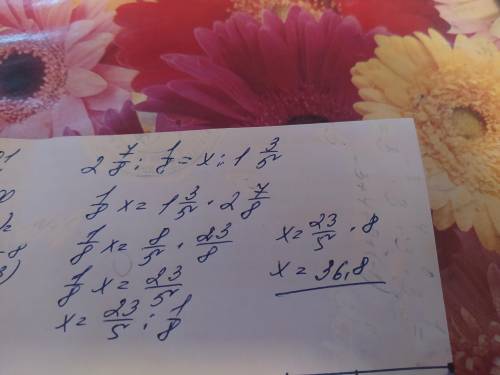 2 7/8 : 1/8 = x : 1 3/5
1/8 x = 1 3/5 · 2 7/8
1/8 x = 8/5 · 23/8
1/8 x = 23/5
x = 23/5 : 1/8
x = 23/5 · 8
x = 36,8